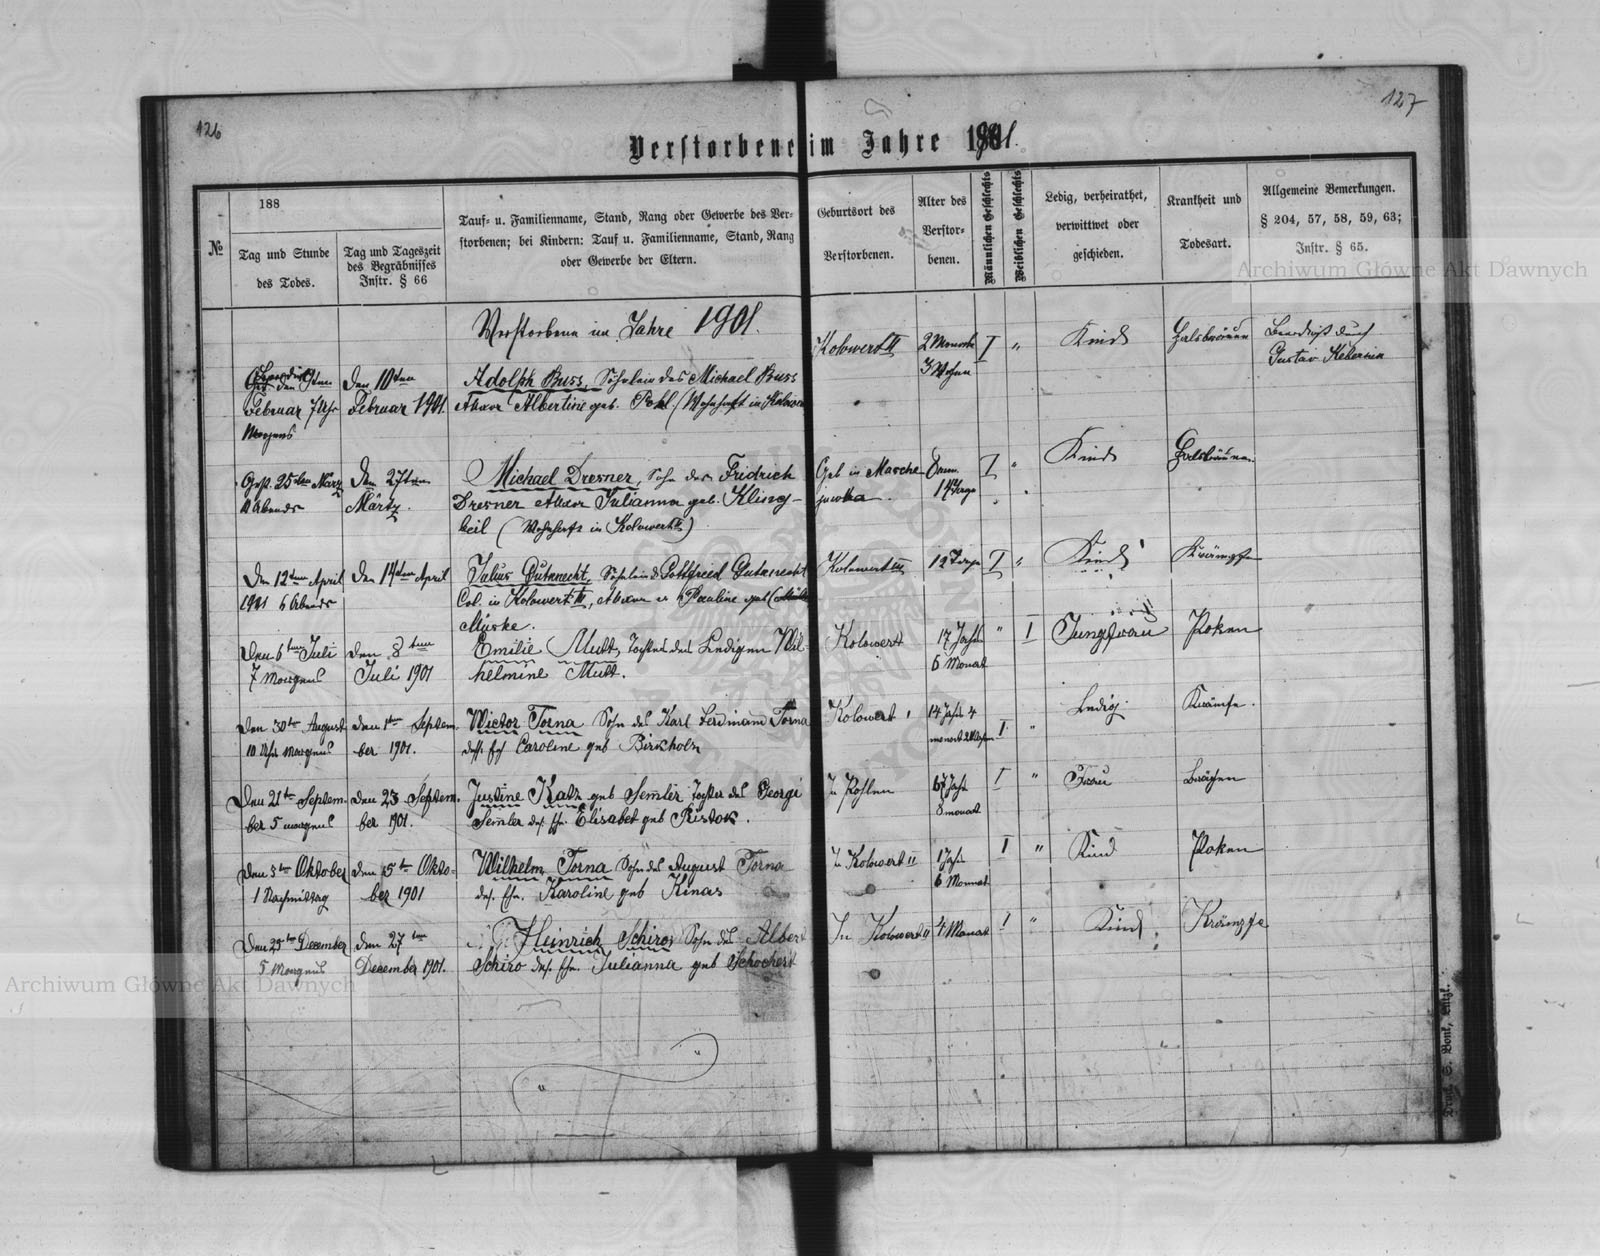 126
127
Verstorbene im Jahre 1901.
№
188
Tag und Stunde
des Todes.
Tag und Tageszeit
des Begräbnisses
Instr. § 66
Tauf- u. Familienname, Stand, Rang oder Gewerbe des Ver-
storbenen; bei Kindern: Tauf u. Familienname, Stand, Rang
oder Gewerbe der Eltern.
Geburtsort des
Verstorbenen.
Alter des
Verstor-
benen.
Männlichen Geschlechts
Weiblichen Geschlechts
Ledig, verheirathet,
verwittwet oder
geschieden.
Krankheit und
Todesart.
Allgemeine Bemerkungen.
§ 204, 57, 58, 59, 63;
Instr. § 65.
Archiwum Główne Akt Dawnych
Verstorbene im Jahre 1901.
den 9ten
Februar 7 Uhr
Morgens
Den 10ten
Februar 1901.
Adolph Buss, Söhnlein des Michael Buss
Albertine geb. Pohl (Wohnhaft in
Kolowert II
2 Monate
3 Wochen
I
"
Kind
Halsbräune
durch
Gustav
Gest. 25ten März
Abends
Den 27ten
Märtz.
Michael Dresner, Sohn des Fridrich
Dresner Julianna geb. Kling-
beil (Wohnhaft in Kolowert II)
Geb in Marche-
juwka.
14 Tage
I
"
Kind
Halsbräune.
Den 12ten April
1901 6 Abends
Den 14ten April
Julius Gutknecht, Söhnlein d. Gottfried Gutknecht
Col. in Kolowert III, Pauline geb
Muske.
Kolowert III
12 Tage
I
"
Kind
Krämpfe
Den 6ten Juli
7 Morgens
den 8ten
Juli 1901
Emilie Mutt, Tochter der Ledigen Wil-
helmine Mutt.
Kolowert
17 Jahr
6 Monat
"
I
Jungfrau
Poken
Den 30ten August
10 Uhr Morgens
den 1ten Septem-
ber 1901.
Wictor Torna Sohn des Karl Ferdinand Torna
Caroline geb Birkholz
Kolowert
14 Jahr 4
I
"
Ledig
Krämfe.
Den 21ten Septem-
ber 5 morgens
den 23 Septem-
ber 1901.
Justine Katz geb Semler Tochter des Georg
Semler des. Ehe. Elisabet geb Ristok.
In Pohlen
67 Jahr
8 monat
I
"
Frau
Den 5ten Oktober
1 Nachmittag
den 15ten Okto-
ber 1901
Wilhelm Torna Sohn des August Torna
des. Ehe. Karoline geb Kinas
In Kolowert II
1 Jahr
6 Monnat
I
"
Kind
Poken
Den 25ten December
5 Morgens
den 27ten
December 1901.
Heinrich Schiro Sohn des Albert
Schiro des. Ehe. Julianna geb Schochert
In Kolowert II
4 Monat
I
"
Kind
Krämpfe
Archiwum Główne Akt Dawnych